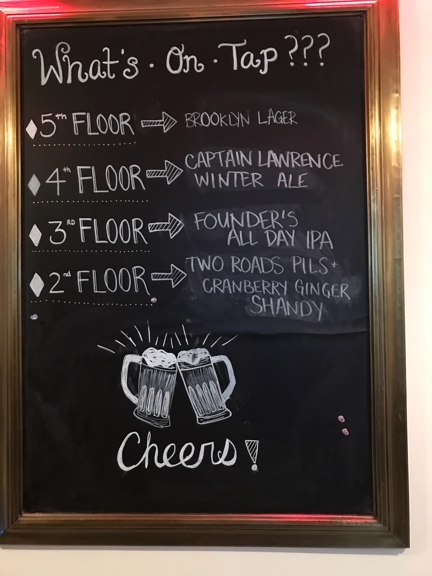 What's · On · Tap ???
5TH FLOOR BROOKLYN LAGER
4TH FLOOR CAPTAIN LAWRENCE
WINTER ALE
3RD FLOOR FOUNDER'S
ALL DAY IPA
2nd FLOOR TWO ROADS PILS +
CRANBERRY GINGER
SHANDY
Cheers!